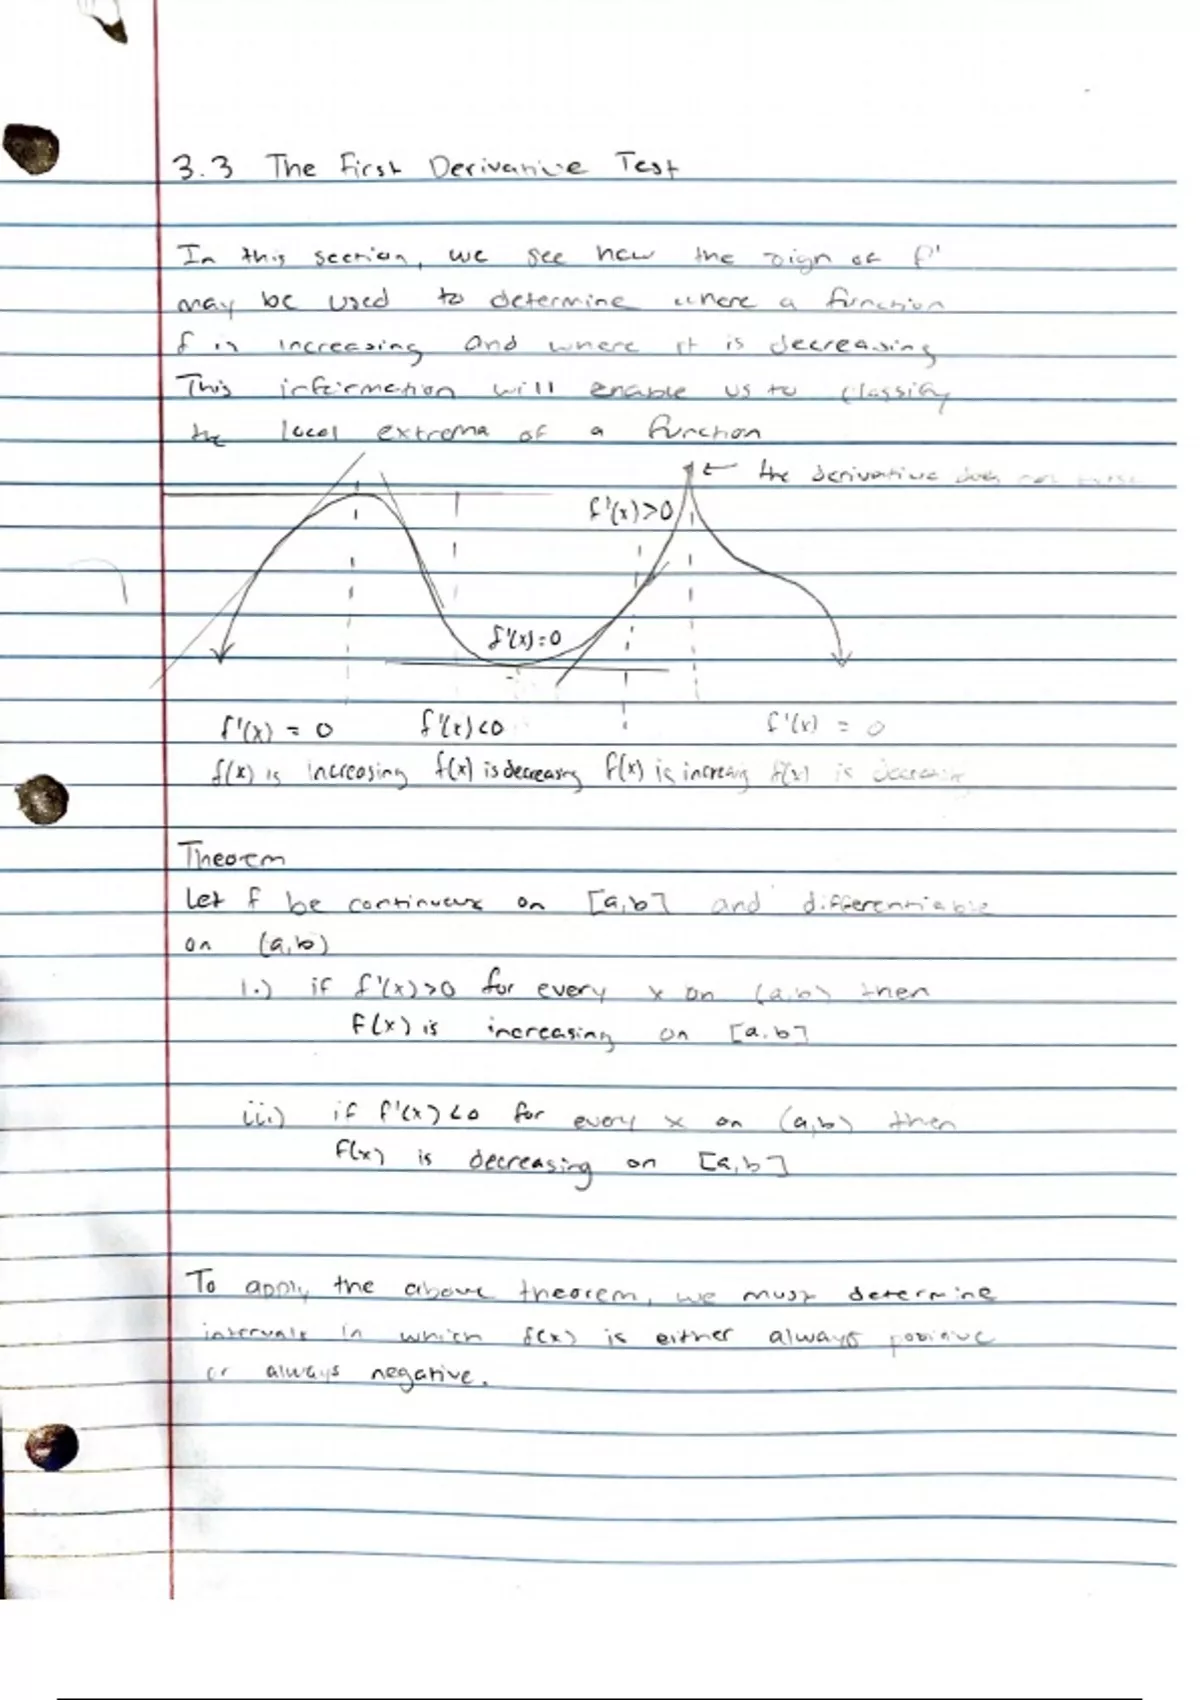 3.3 The First Derivative Test
In this section, we see how the sign of f'
may be used to determine where a function
f is increasing and where it is decreasing
This information will enable us to classify
the local extrema of a function
← the derivative does not exist
f'(x)>0
f'(x)=0
f'(x) = 0 f'(x)<0 f'(x) = 0
f(x) is increasing f(x) is decreasing f(x) is increasing f(x) is decreasing
Theorem
Let f be continuous on [a,b] and differentiable
on (a,b)
i.) if f'(x)>0 for every x on (a,b) then
f(x) is increasing on [a,b]
ii.) if f'(x)<0 for every x on (a,b) then
f(x) is decreasing on [a,b]
To apply the above theorem, we must determine
intervals in which f(x) is either always positive
or always negative.